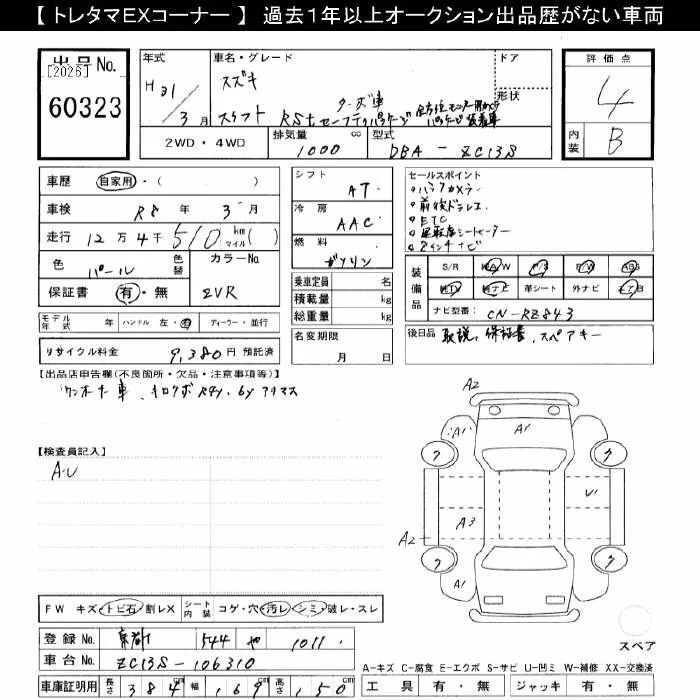 【 トレタマEXコーナー 】 過去1年以上オークション出品歴がない車両
出品No.
[2026]
60323
年式
H31/3月
車名・グレード
スズキ
ターボ車
スイフト RSt セーフティパッケージ 全方位モニター用カメラパッケージ装着車
ドア
形状
2WD・4WD
排気量
1000 cc
型式
DBA - ZC13S
評価点
4
内装
B
車歴 自家用・( )
車検 R8年 3月
走行 12万4千510 km マイル( )
色 パール 色替
カラーNo. ZVR
保証書 有・無
モデル年式 年 ハンドル 左・右 ディーラー・並行
リサイクル料金 9,380円 預託済
シフト AT
冷房 AAC
燃料 ガソリン
乗車定員 名
積載量 kg
総重量 kg
名変期限 月 日
セールスポイント
・バックカメラ
・前後ドラレコ
・ETC
・運転席シートヒーター
・8インチナビ
装備品
S/R 純A/W P/S P/W ABS
純TV 純ナビ 革シート 外ナビ エアB
ナビ型番: CN-RZ843
後日品 取説、保証書、スペアキー
【出品店申告欄(不良箇所・欠品・注意事項等)】
ワンオーナー車、
【検査員記入】
A・U
A2
A1
A1
ク
ク
U1
A3
A2
ク
ク
A1
FW キズ・トビ石・割レX シート内装 コゲ・穴・汚レ・シミ・破レ・スレ
登録No. 京都 544 や 1011
車台No. ZC13S-106310
車庫証明用 長さ 384cm 幅 169cm 高さ 150cm
スペア
A-キズ C-腐食 E-エクボ S-サビ U-凹ミ W-補修 XX-交換済
工具 有・無 ジャッキ 有・無